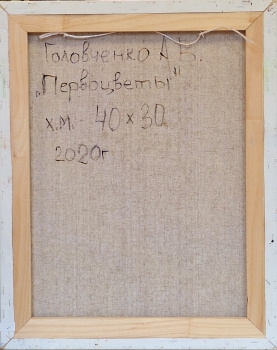 Головченко А В.
„Первоцветы"
х.м. - 40 x 30
2020г